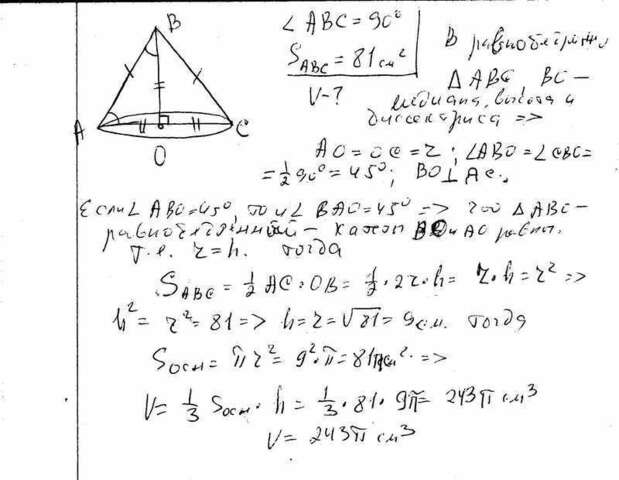 B
A
C
O
∠ABC = 90°
S_ABC = 81 см²
V-?
В равнобедренном
Δ ABC BO –
медиана, высота и
биссектриса =>
AO = OC = r; ∠ABO = ∠CBO =
= ½ 90° = 45°; BO ⊥ AC.
Если ∠ABO = 45°, то и ∠BAO = 45° => Δ ABO –
равнобедренный – катеты BO и AO равны,
т.е. r = h. тогда
S_ABC = ½ AC · OB = ½ · 2r · h = r · h = r² =>
h² = r² = 81 => h = r = √81 = 9 см. тогда
S осн = πr² = 9² · π = 81π см² =>
V = ⅓ S осн · h = ⅓ · 81 · 9π = 243π см³
V = 243π см³